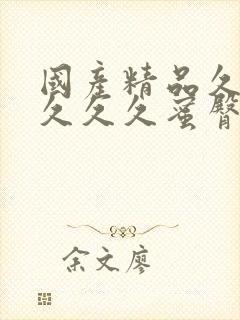 國產精品久
久久久蜜臀
余文廖